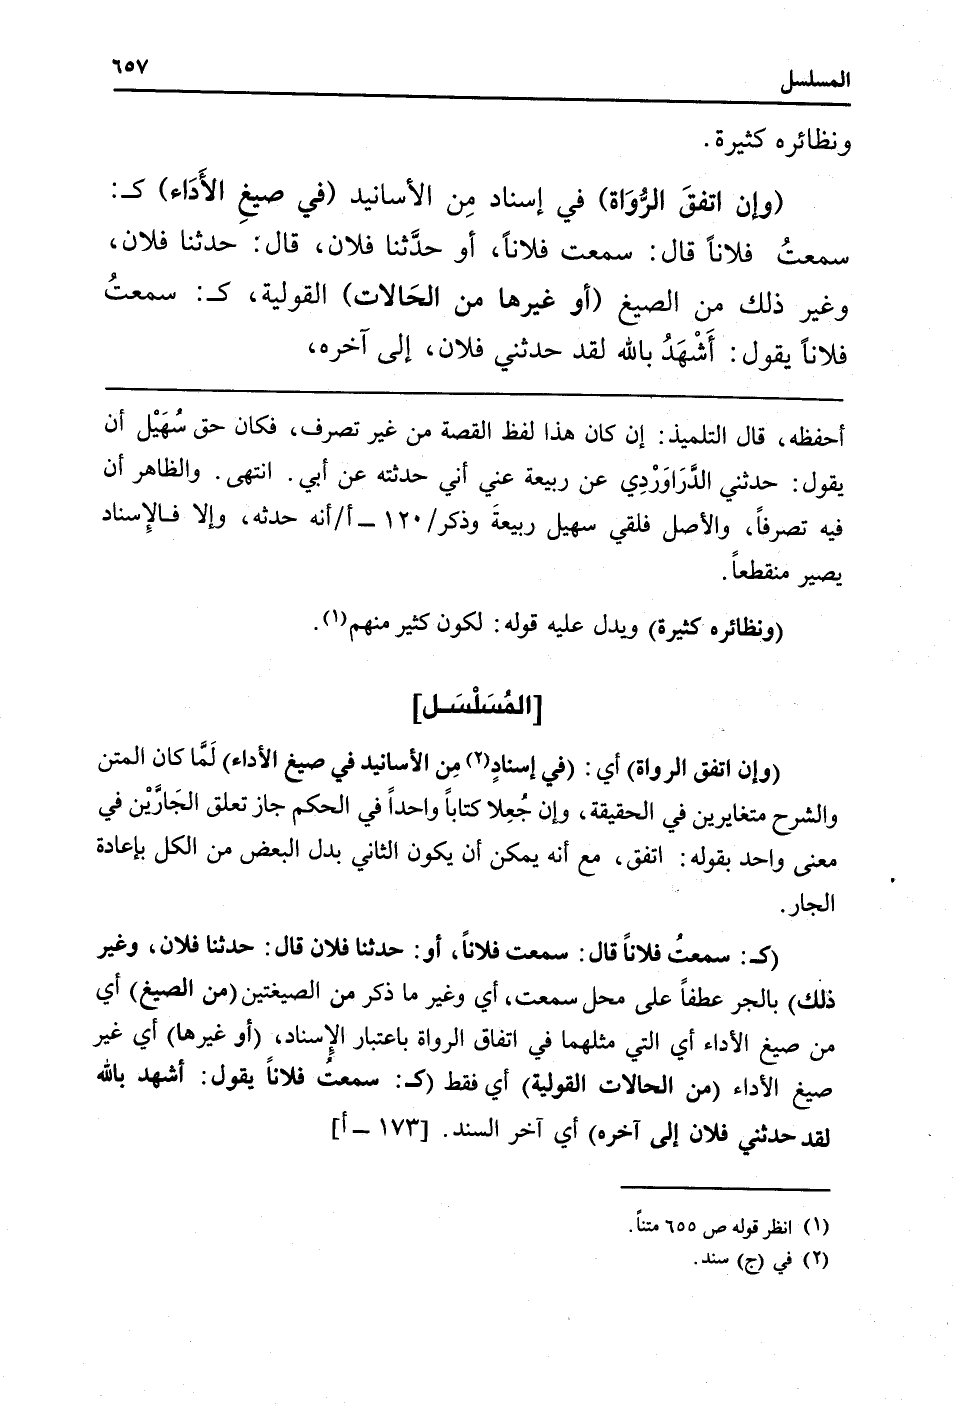 المسلسل ٦٥٧
ونظائره كثيرة.
(وإن اتفقَ الرُّوَاة) في إسناد مِن الأسانيد (في صيغِ الأَدَاء) كـ:
سمعتُ فلاناً قال: سمعت فلاناً، أو حدَّثنا فلان، قال: حدثنا فلان،
وغير ذلك من الصيغ (أو غيرها من الحَالات) القولية، كـ: سمعتُ
فلاناً يقول: أَشْهَدُ بالله لقد حدثني فلان، إلى آخره،
أحفظه، قال التلميذ: إن كان هذا لفظ القصة من غير تصرف، فكان حق سُهَيْل أن
يقول: حدثني الدَّرَاوَرْدِي عن ربيعة عني أني حدثته عن أبي. انتهى. والظاهر أن
فيه تصرفاً، والأصل فلقي سهيل ربيعةَ وذكر/١٢٠ ـ أ/أنه حدثه، وإلا فـالإسناد
يصير منقطعاً.
(ونظائره كثيرة) ويدل عليه قوله: لكون كثير منهم(١).
[المُسَلْسَـل]
(وإن اتفق الرواة) أي: (في إسنادٍ(٢) مِن الأسانيد في صيغ الأداء) لَمَّا كان المتن
والشرح متغايرين في الحقيقة، وإن جُعِلا كتاباً واحداً في الحكم جاز تعلق الجَارَّيْن في
معنى واحد بقوله: اتفق، مع أنه يمكن أن يكون الثاني بدل البعض من الكل بإعادة
الجار.
(كـ: سمعتُ فلاناً قال: سمعت فلاناً، أو: حدثنا فلان قال: حدثنا فلان، وغير
ذلك) بالجر عطفاً على محل سمعت، أي وغير ما ذكر من الصيغتين (من الصيغ) أي
من صيغ الأداء أي التي مثلهما في اتفاق الرواة باعتبار الإسناد، (أو غيرها) أي غير
صيغ الأداء (من الحالات القولية) أي فقط (كـ: سمعتُ فلاناً يقول: أشهد بالله
لقد حدثني فلان إلى آخره) أي آخر السند. [١٧٣ ـ أ]
(١) انظر قوله ص ٦٥٥ متناً.
(٢) في (ج) سند.